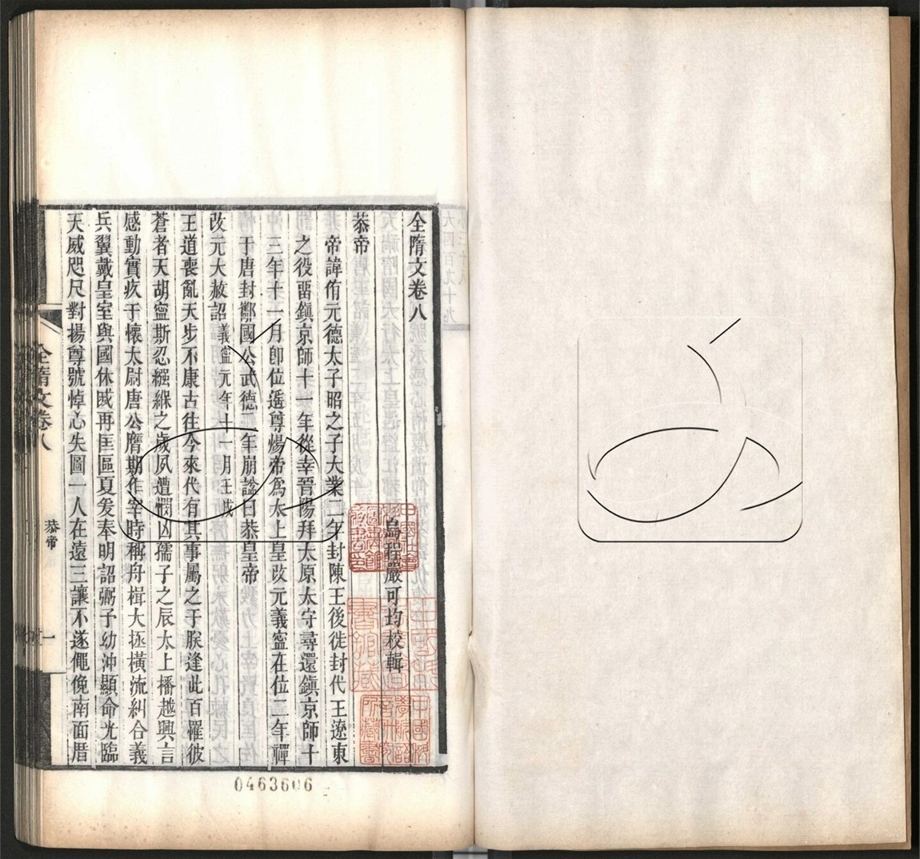 全隋文卷八
烏程嚴可均校輯
恭帝
帝諱侑元德太子昭之子大業三年封陳王後徙封代王遼東
之役留鎮京師十一年從幸晉陽拜太原太守尋還鎮京師十
三年十一月卽位遥尊煬帝爲太上皇改元義寍在位二年禪
于唐封酅國公武德二年崩諡曰恭皇帝
改元大赦詔義寍元年十一月壬戌
王道喪亂天步不康古往今來代有其事屬之于朕逢此百罹彼
蒼者天胡寍斯忍繦緥之歲夙遭憫凶孺子之辰太上播越興言
感動實疚于懷太尉唐公膺期作宰時稱舟楫大拯橫流糾合義
兵翼戴皇室與國休戚再匡區夏爰奉明詔弼予幼沖顯命光臨
天威咫尺對揚尊號悼心失圖一人在遠三讓不遂僶俛南面厝
全隋文卷八
恭帝
一
0463606